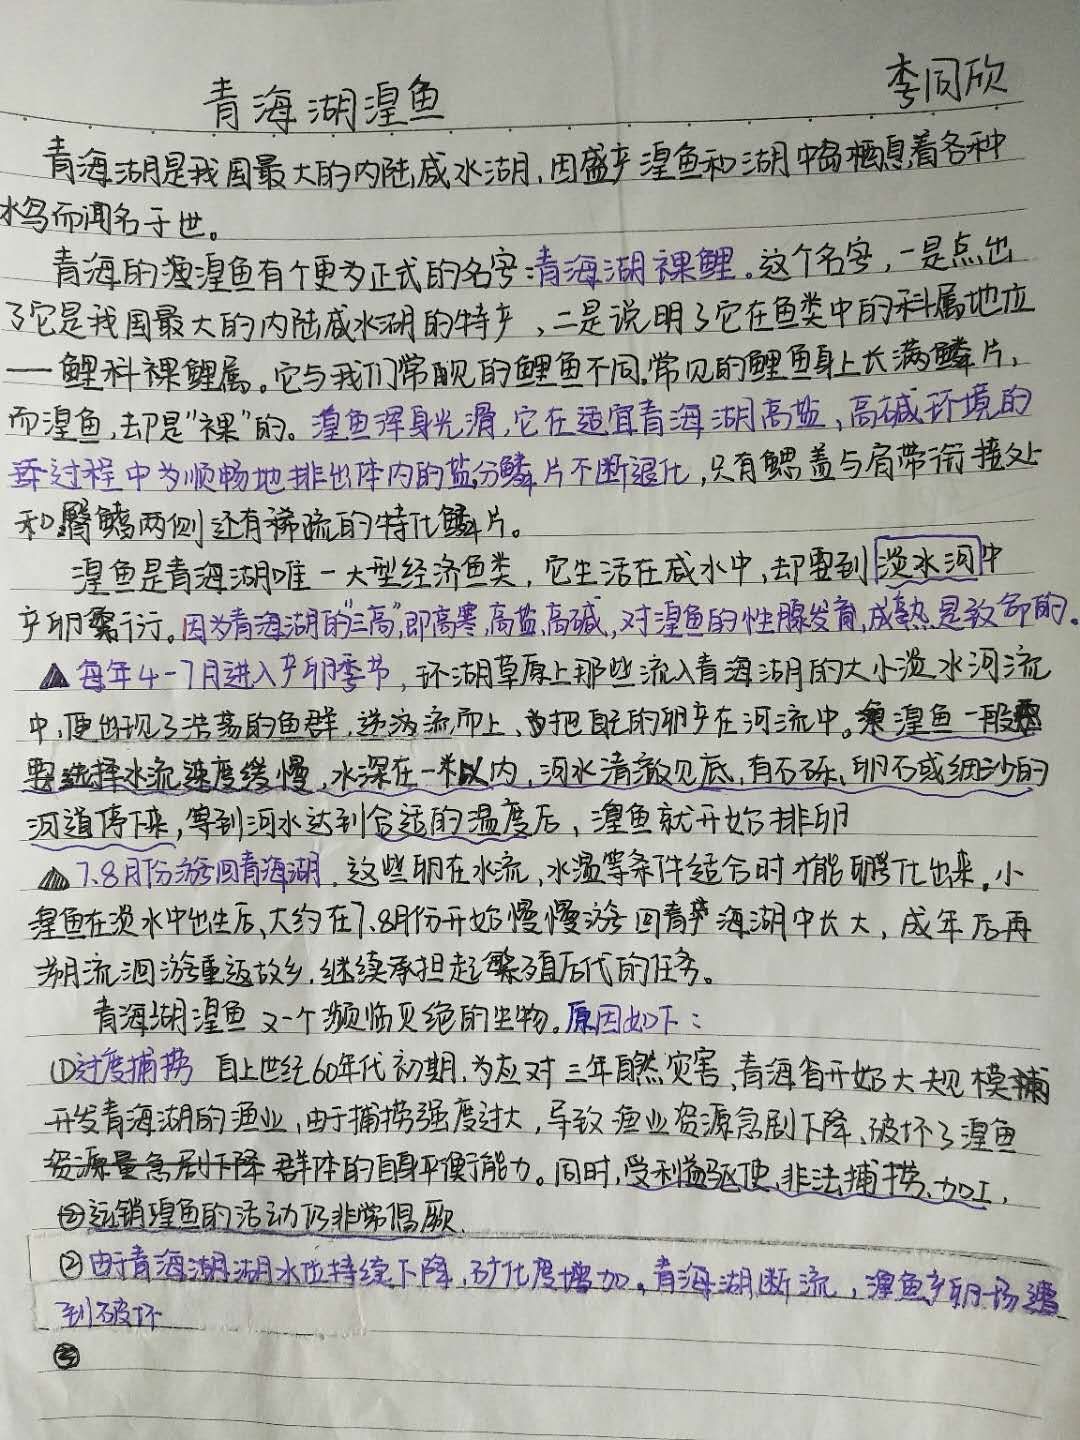 青海湖湟鱼
李同欣
青海湖是我国最大的内陆咸水湖，因盛产湟鱼和湖中岛栖息着各种
水鸟而闻名于世。
青海的湟鱼有个更为正式的名字：青海湖裸鲤。这个名字，一是点出
了它是我国最大的内陆咸水湖的特产，二是说明了它在鱼类中的科属地位
——鲤科裸鲤属。它与我们常见的鲤鱼不同，常见的鲤鱼身上长满鳞片，
而湟鱼，却是"裸"的。湟鱼浑身光滑，它在适宜青海湖高盐、高碱环境的
过程中为顺畅地排出体内的盐分鳞片不断退化，只有鳃盖与肩带衔接处
和臀鳍两侧还有稀疏的特化鳞片。
湟鱼是青海湖唯一大型经济鱼类，它生活在咸水中，却要到淡水河中
产卵繁衍。因为青海湖的"三高"，即高寒，高盐，高碱，对湟鱼的性腺发育，成熟是致命的。
▲每年4-7月进入产卵季节，环湖草原上那些流入青海湖的大小淡水河流
中，便出现了浩荡的鱼群，逆流而上，把自己的卵产在河流中。湟鱼一般
要选择水流速度缓慢，水深在一米以内，河水清澈见底，有石砾、卵石或细沙的
河道停下来，等到河水达到合适的温度后，湟鱼就开始排卵
▲7、8月份游回青海湖，这些卵在水流，水温等条件适合时才能孵化出来。小
湟鱼在淡水中出生后，大约在7、8月份开始慢慢游回青海湖中长大，成年后再
溯流洄游重返故乡，继续承担起繁殖后代的任务。
青海湖湟鱼又一个濒临灭绝的生物。原因如下：
①过度捕捞 自上世纪60年代初期，为应对三年自然灾害，青海省开始大规模
开发青海湖的渔业，由于捕捞强度过大，导致渔业资源急剧下降、破坏了湟鱼
群体的自身平衡能力。同时，受利益驱使，非法捕捞、加工，
运销湟鱼的活动仍非常猖獗。
②由于青海湖湖水位持续下降，矿化度增加。青海湖断流，湟鱼产卵场遭
到破坏
③